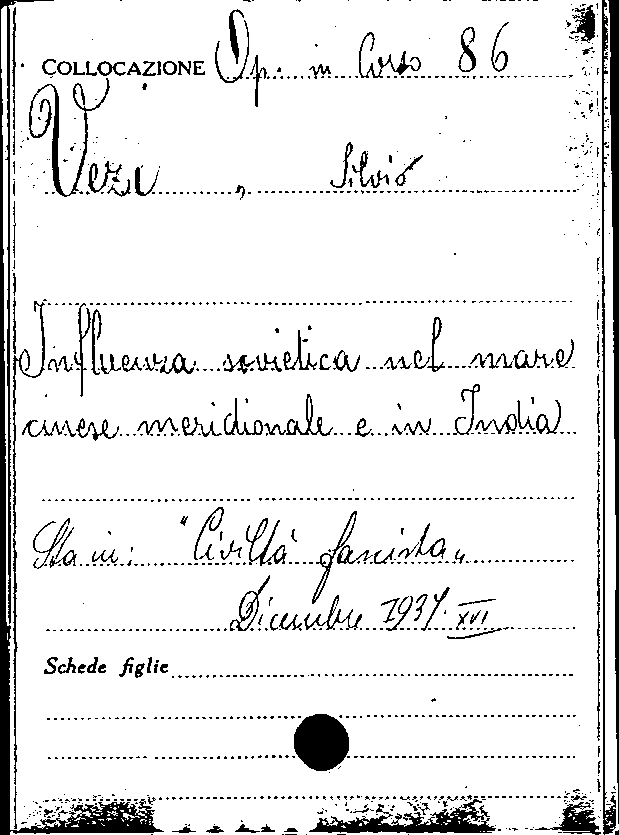 COLLOCAZIONE Op. in Corso 86
Vezu, Silvio
Influenza sovietica nel mare
cinese meridionale e in India
Sta in: "Civiltà fascista"
Dicembre 1937. XVI
Schede figlie